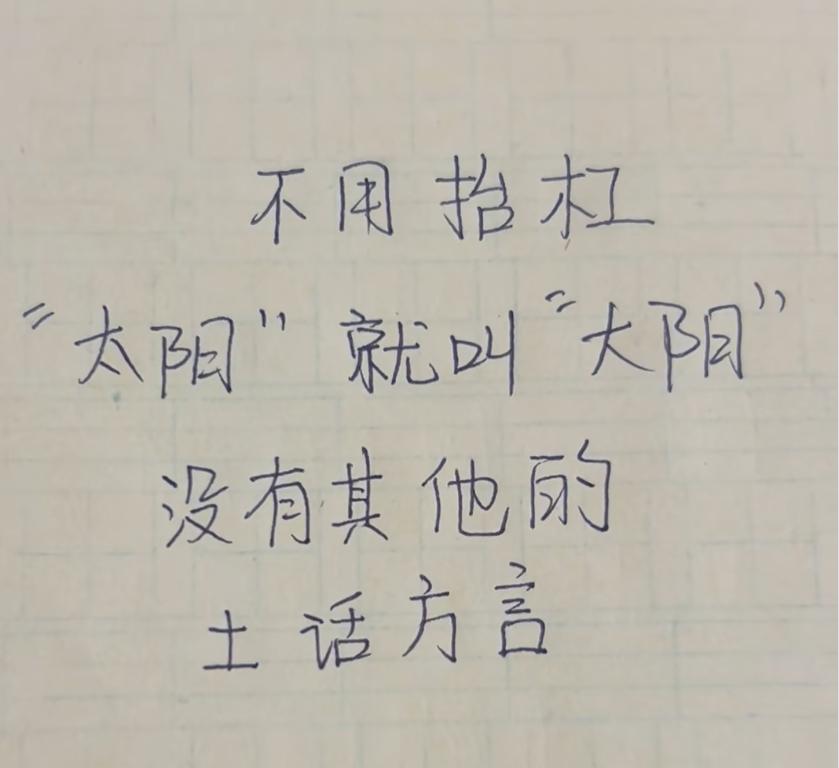 不用抬杠
“太阳”就叫“大阳”
没有其他的
土话方言